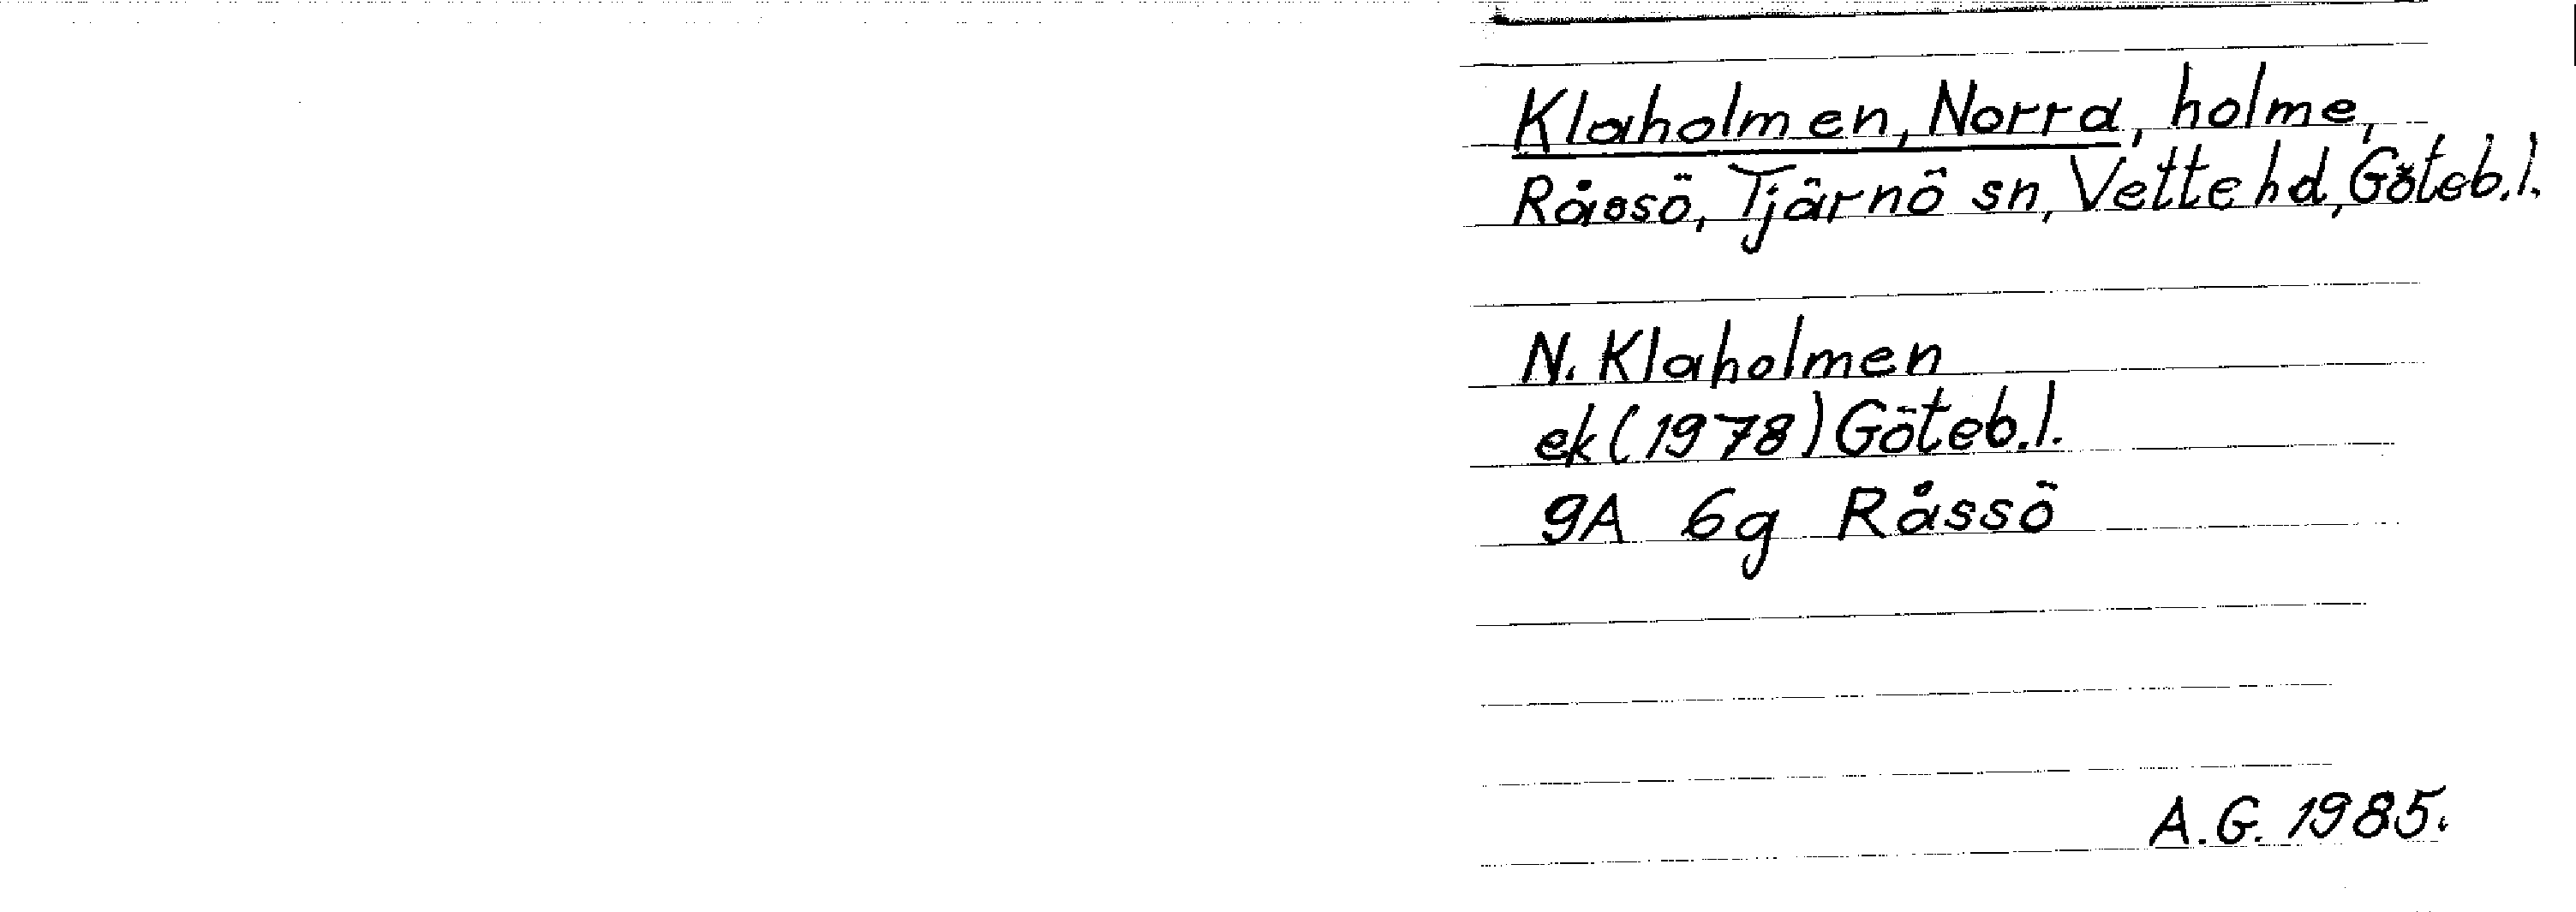 Klaholmen, Norra, holme,
Råssö, Tjärnö sn, Vette hd, Göteb.l.
N. Klaholmen
ek (1978) Göteb.l.
9A 6g Råssö
A.G. 1985.